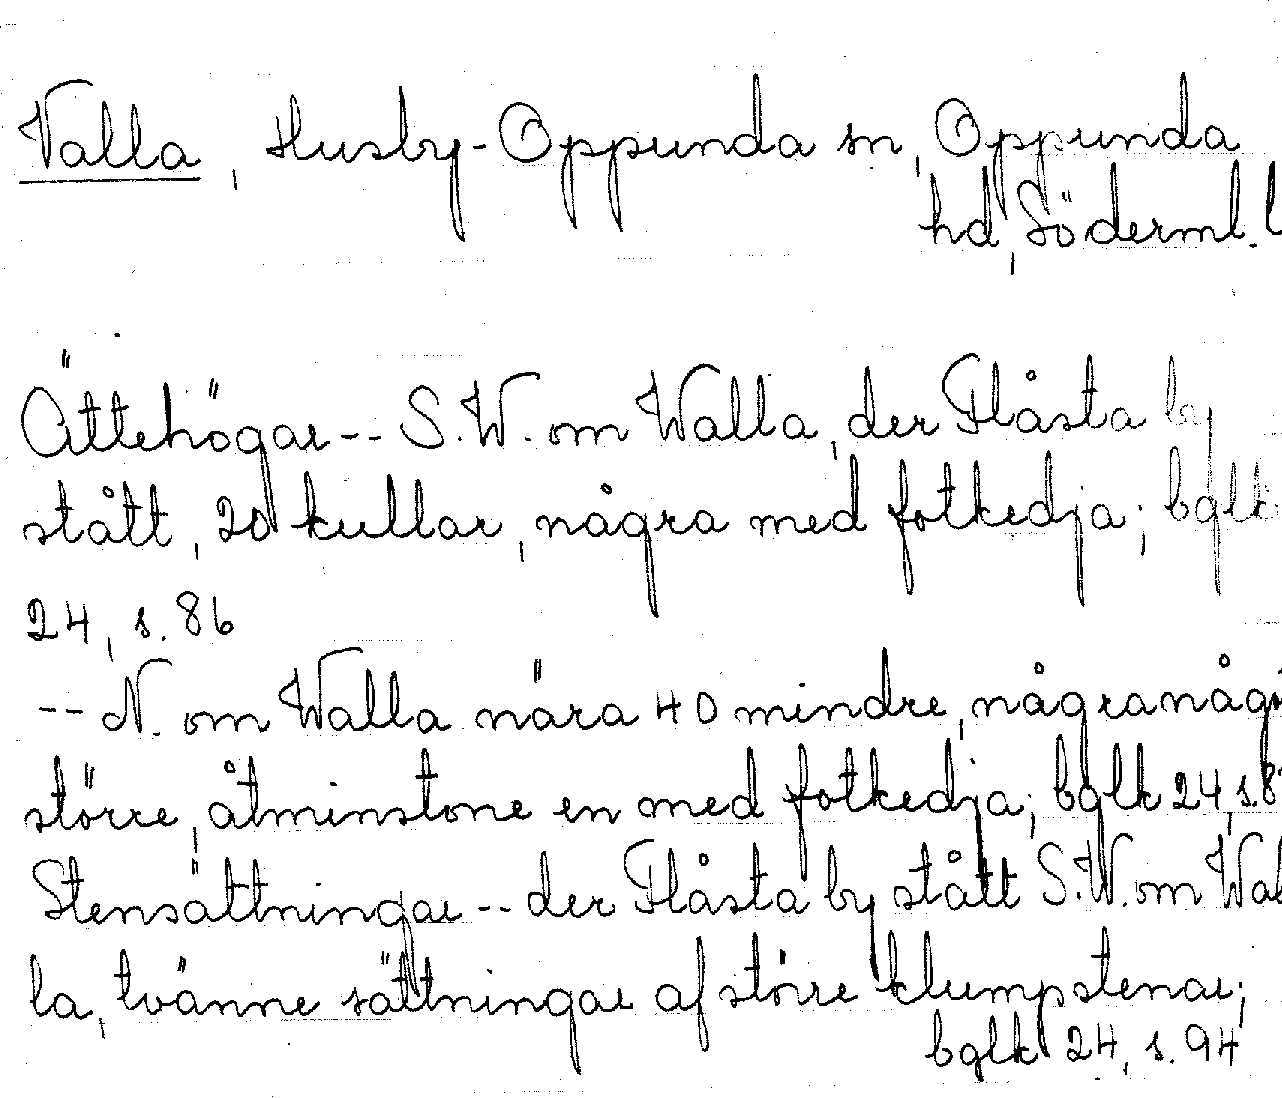 Valla, Husby-Oppunda sn, Oppunda
hd, Söderml. l
Ättehögar -- S.W. om Walla, der Flåsta by
stått, 20 kullar, några med fotkedja; bglk
24, s. 86
-- N. om Walla nära 40 mindre, någranågo
större, åtminstone en med fotkedja; bglk 24, s. 8
Stensättningar -- der Flåsta by stått S.W. om Wal
la, tvänne sättningar af större klumpstenar;
bglk 24, s. 94